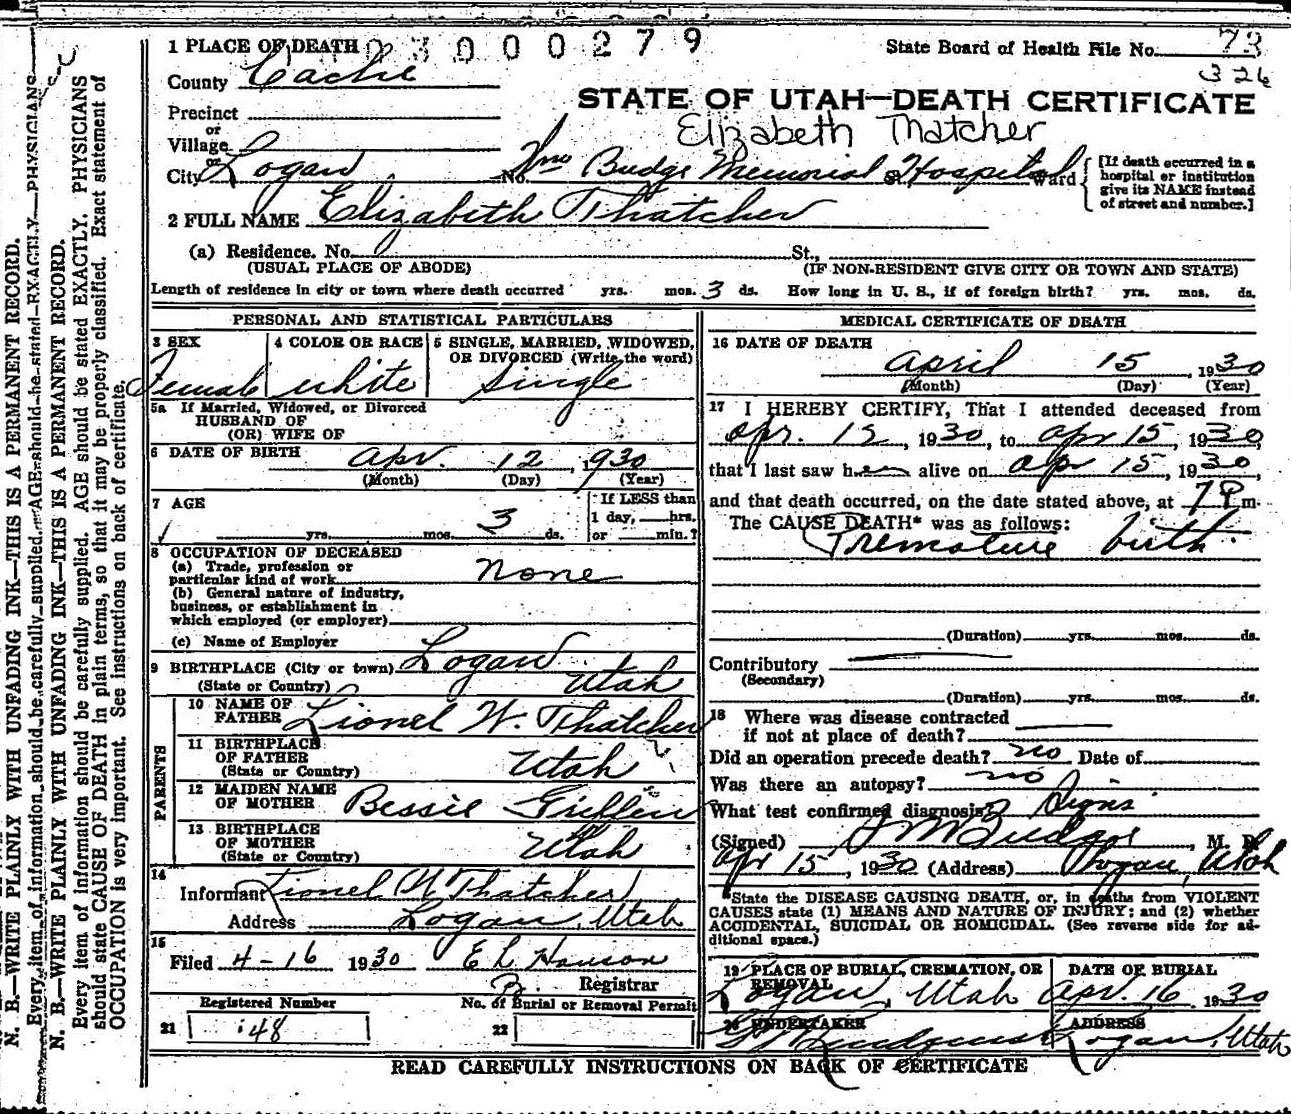 1 PLACE OF DEATH 0 3 0 0 0 2 7 9
State Board of Health File No. 73
326
County Cache
STATE OF UTAH—DEATH CERTIFICATE
Precinct
Elizabeth Thatcher
or
Village
or
City Logan No. Wm Budge Memorial Hospital St. Ward
[If death occurred in a hospital or institution give its NAME instead of street and number.]
2 FULL NAME Elizabeth Thatcher
(a) Residence. No. St.,
(USUAL PLACE OF ABODE) (IF NON-RESIDENT GIVE CITY OR TOWN AND STATE)
Length of residence in city or town where death occurred yrs. mos. 3 ds. How long in U. S., if of foreign birth? yrs. mos. ds.
PERSONAL AND STATISTICAL PARTICULARS
3 SEX 4 COLOR OR RACE 5 SINGLE, MARRIED, WIDOWED,
OR DIVORCED (Write the word)
Female white Single
5a If Married, Widowed, or Divorced
HUSBAND OF
(OR) WIFE OF
6 DATE OF BIRTH Apr. 12, 1930
(Month) (Day) (Year)
7 AGE If LESS than
1 day, hrs.
yrs. mos. 3 ds. or min.?
8 OCCUPATION OF DECEASED
(a) Trade, profession or
particular kind of work None
(b) General nature of industry,
business, or establishment in
which employed (or employer)
(c) Name of Employer
9 BIRTHPLACE (City or town) Logan
(State or Country) Utah
PARENTS
10 NAME OF
FATHER Lionel W. Thatcher
11 BIRTHPLACE
OF FATHER
(State or Country) Utah
12 MAIDEN NAME
OF MOTHER Bessie
13 BIRTHPLACE
OF MOTHER
(State or Country) Utah
14
Informant Lionel W Thatcher
Address Logan, Utah
15
Filed 4-16 1930 E L Hanson
Registrar
Registered Number No. of Burial or Removal Permit
21 48 22
MEDICAL CERTIFICATE OF DEATH
16 DATE OF DEATH
April 15, 1930
(Month) (Day) (Year)
17 I HEREBY CERTIFY, That I attended deceased from
Apr. 12, 1930, to Apr 15, 1930,
that I last saw her alive on Apr 15, 1930,
and that death occurred, on the date stated above, at 7 P m.
The CAUSE DEATH* was as follows:
Premature birth
(Duration) yrs. mos. ds.
Contributory
(Secondary)
(Duration) yrs. mos. ds.
18 Where was disease contracted
if not at place of death?
Did an operation precede death? no Date of
Was there an autopsy? no
What test confirmed diagnosis? Signs
(Signed) D M Budge, M. D.
Apr 15, 1930 (Address) Logan, Utah
*State the DISEASE CAUSING DEATH, or, in deaths from VIOLENT
CAUSES state (1) MEANS AND NATURE OF INJURY; and (2) whether
ACCIDENTAL, SUICIDAL OR HOMICIDAL. (See reverse side for ad-
ditional space.)
19 PLACE OF BURIAL, CREMATION, OR DATE OF BURIAL
REMOVAL
Logan, Utah Apr. 16, 1930
20 UNDERTAKER ADDRESS
Logan, Utah
READ CAREFULLY INSTRUCTIONS ON BACK OF CERTIFICATE
N. B.—WRITE PLAINLY WITH UNFADING INK—THIS IS A PERMANENT RECORD.
Every item of information should be carefully supplied. AGE should be stated EXACTLY. PHYSICIANS
N. B.—WRITE PLAINLY WITH UNFADING INK—THIS IS A PERMANENT RECORD.
Every item of information should be carefully supplied. AGE should be stated EXACTLY. PHYSICIANS
should state CAUSE OF DEATH in plain terms, so that it may be properly classified. Exact statement of
OCCUPATION is very important. See instructions on back of certificate.